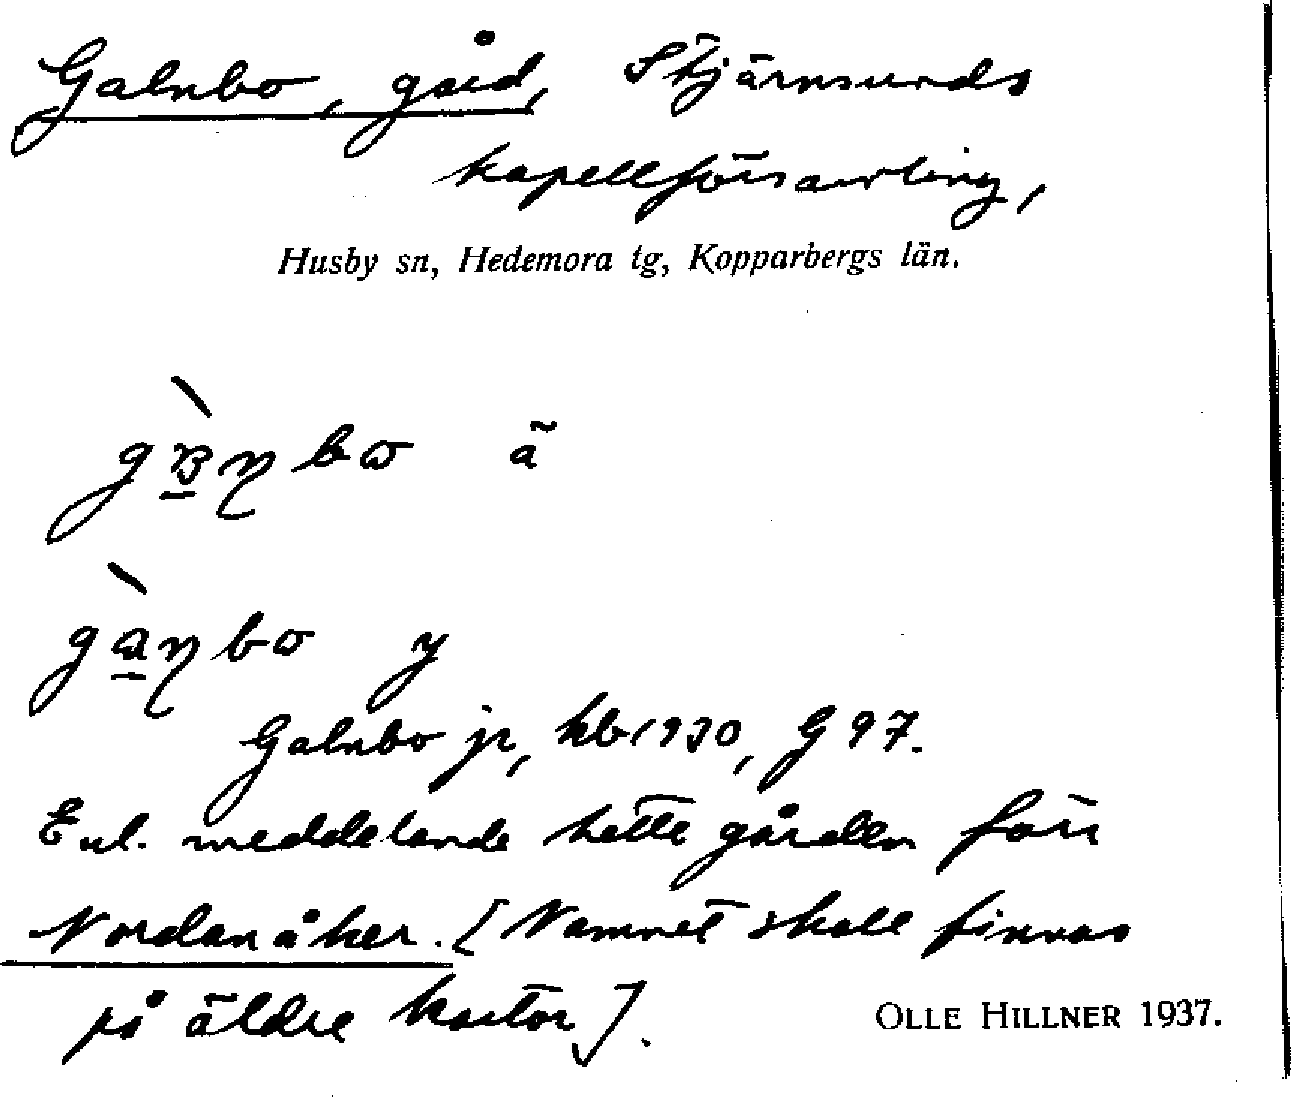 Galnbo, gård, Stjärnsunds
kapellförsamling,
Husby sn, Hedemora tg, Kopparbergs län.
ä
y
Galnbo jr, hb 1930, G 97.
Enl. meddelande hette gården förr
Nordanåker. [Namnet skall finnas
på äldre kartor].
OLLE HILLNER 1937.